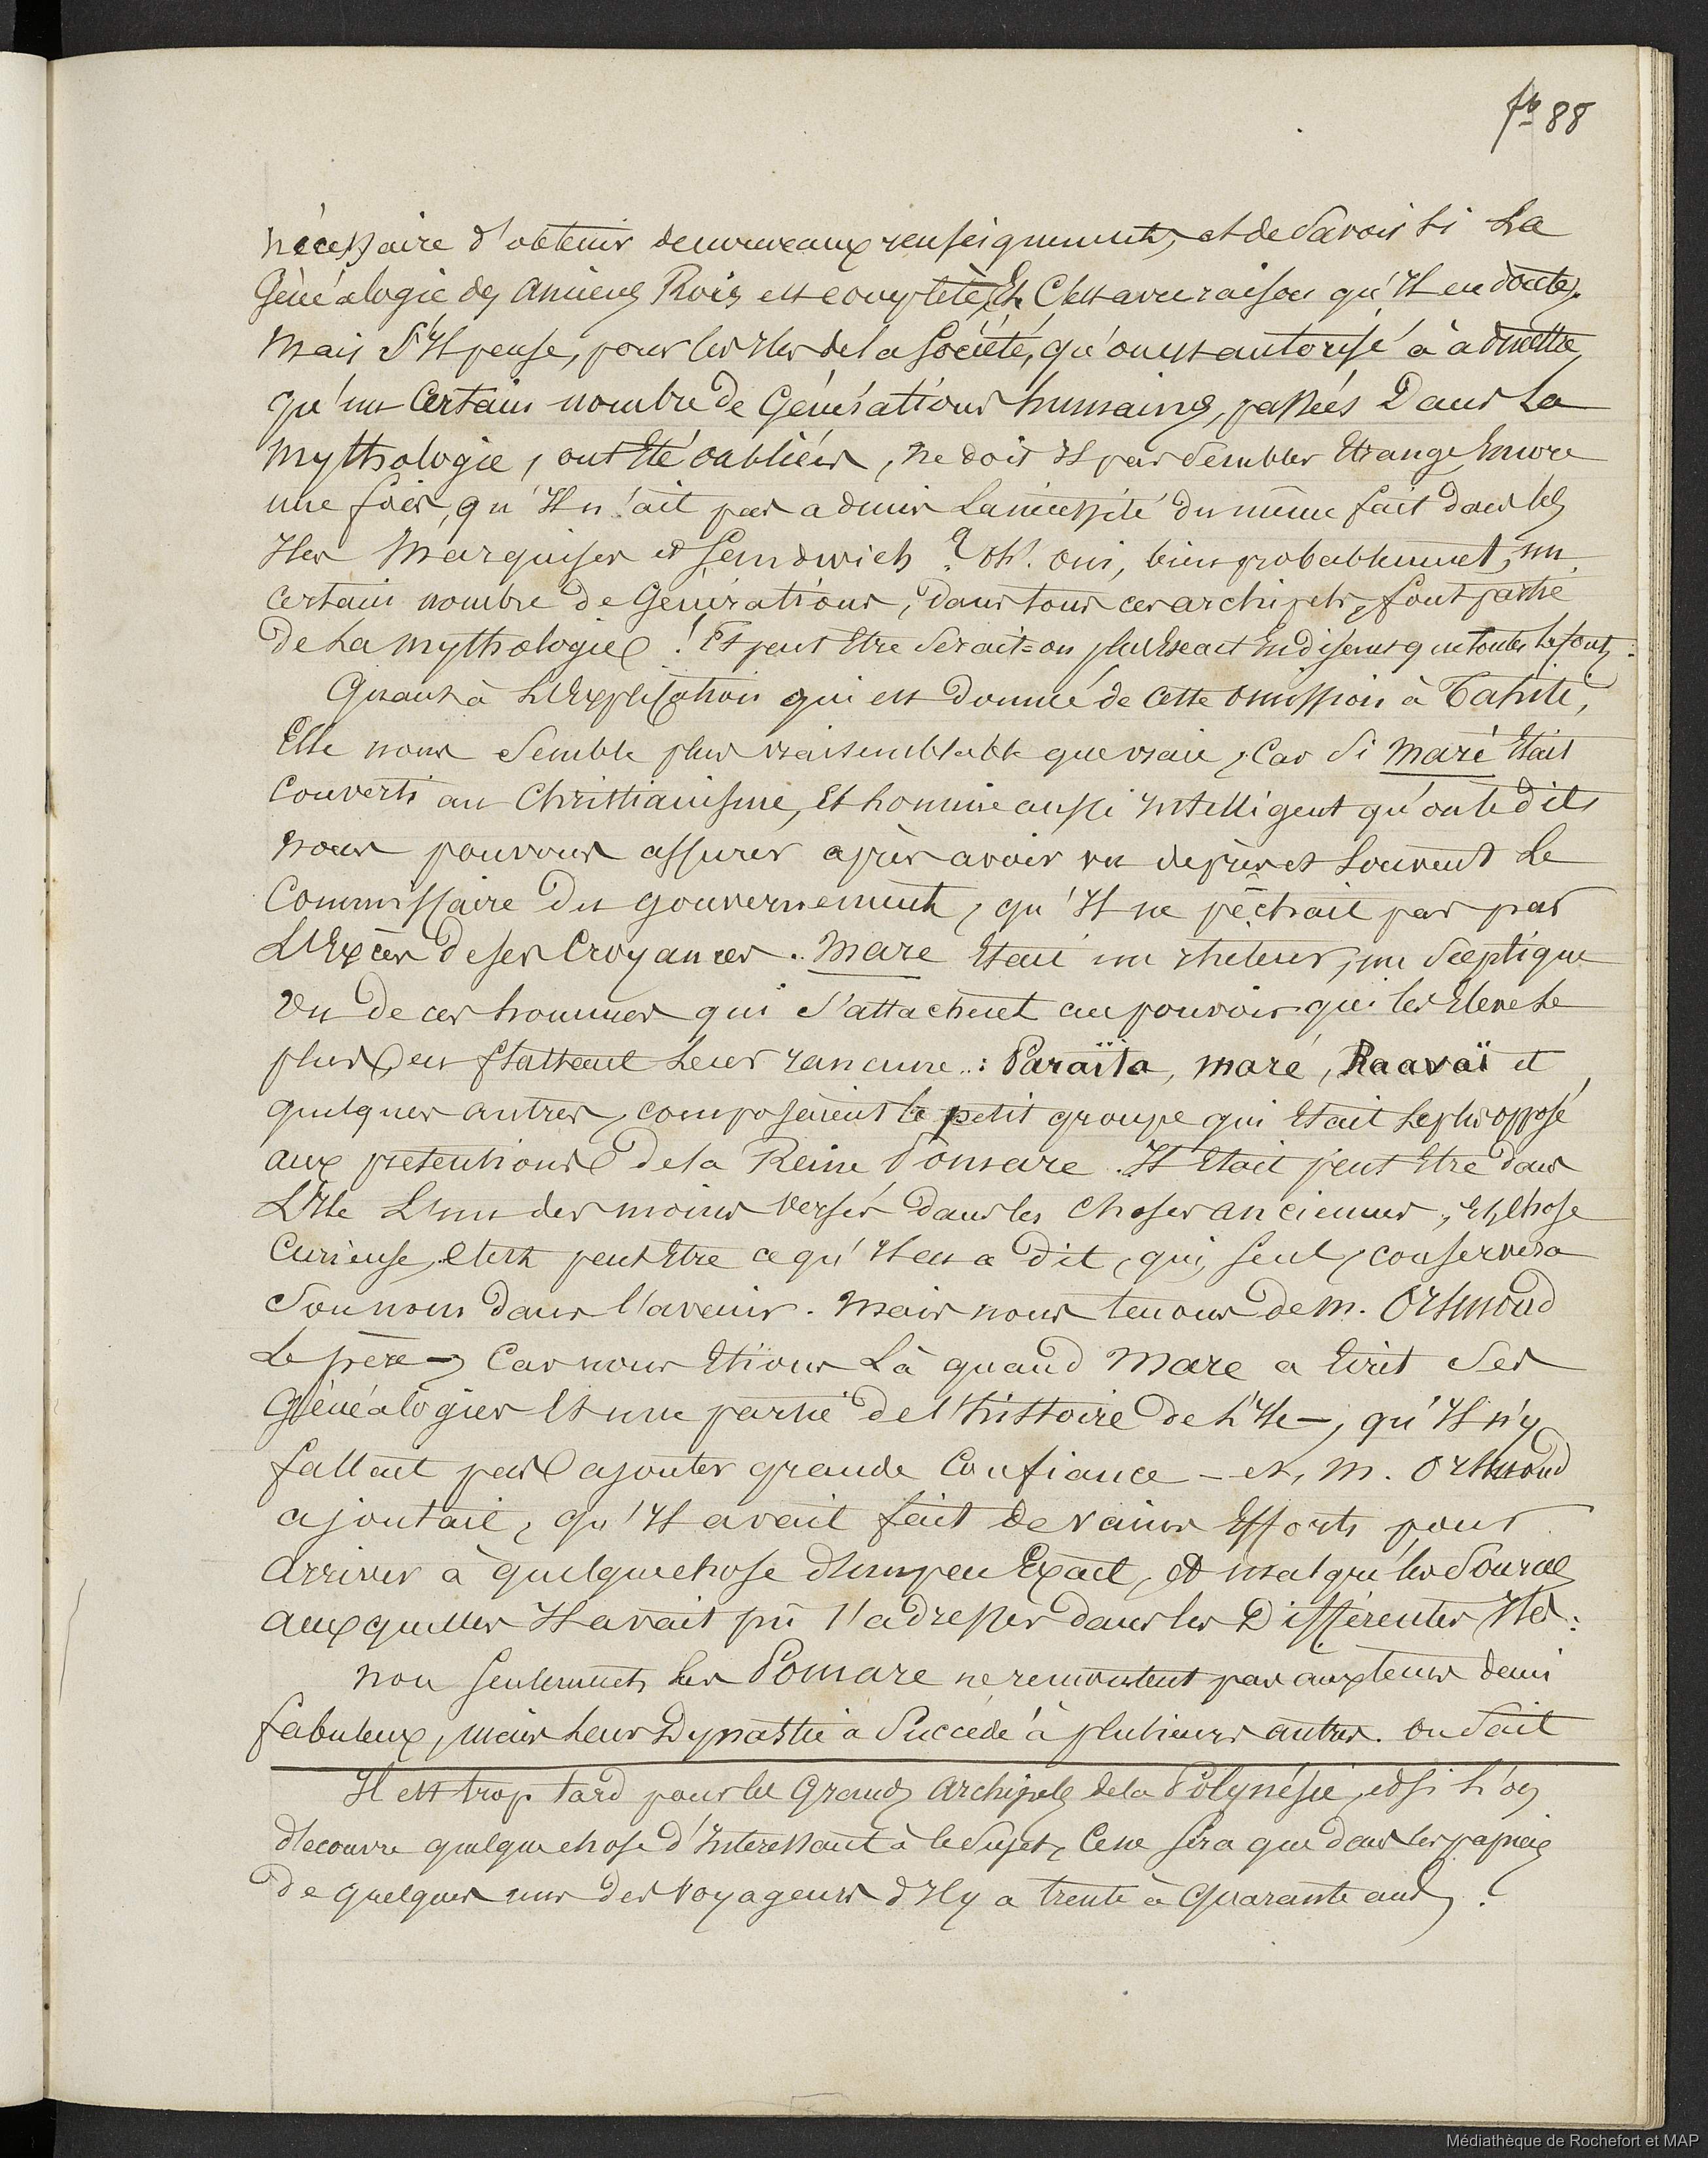 fo 88
nécessaire d'obtenir de nouveaux renseignements, et de Savoir Si La
Généalogie des anciens Rois est complète, Et C'est avec raison qu'Il en doute.
Mais S'Il pense, pour les Iles de la Société, qu'on est autorisé à admettre,
qu'un Certain nombre de Générations humaines, passées Dans La
mythologie, ont Eté oubliées, ne doit Il pas Sembler Etrange Encore
une fois, qu'Il n'ait pas admis La nécessité du même fait dans les
Iles Marquises et Sandwich ? Oh! oui, bien probablement, un
certain nombre de Générations, dans tous ces archipels, font partie
de La Mythologie ! Et peut Etre Serait-on plus Exact En disant que toutes Le font :
Quant à L'Explication qui est Donnée de cette omission à Tahiti,
Elle nous Semble plus vraisemblable que vraie, Car Si Maré Etait
Converti au Christianisme, Et homme aussi Intelligent qu'on le dit,
nous pouvons assurer après avoir vu de près et Souvent Le
Commissaire Du gouvernement, qu'Il ne pêchait pas par
L'Excès De ses Croyances. Mare Etait un rhéteur, un Sceptique
Un de ces hommes qui S'attachent au pouvoir qui les Elève Le
plus, en flattant Leur rancune : Paraïta, maré, Raavaï et
quelques autres, composaient le petit groupe qui Etait Le plus opposé
aux prétentions De la Reine Pomare. Il Etait peut Etre dans
L'Ile L'un des moins Versés dans les Choses anciennes, Et, Chose
Curieuse, C'est peut Etre ce qu'Il en a Dit, qui, Seul, conservera
Son nom dans l'avenir. Mais nous tenons de M. Orsmond
Le père - Car nous Etions Là quand Mare a Ecrit Ses
Généalogies Et une partie de l'histoire de L'Ile -, qu'Il n'y
fallait pas ajouter grande Confiance - et, M. Orsmond
ajoutait, qu'Il avait fait de vains Efforts pour
arriver à quelque chose d'un peu Exact, Et malgré les Sources
auxquelles Il avait pû s'adresser dans les Différentes Iles :
non Seulement Les Pomare ne remontent pas aux tems demi
fabuleux, mais Leur Dynastie a Succédé à plusieurs autres. On Sait
Il est trop tard pour les Grands Archipels de la Polynésie, et Si L'on
découvre quelque chose d'Intéressant à ce Sujet, Ce ne Sera que dans les papiers
De quelques uns des Voyageurs d'Il y a trente à Quarante ans !
Médiathèque de Rochefort et MAP